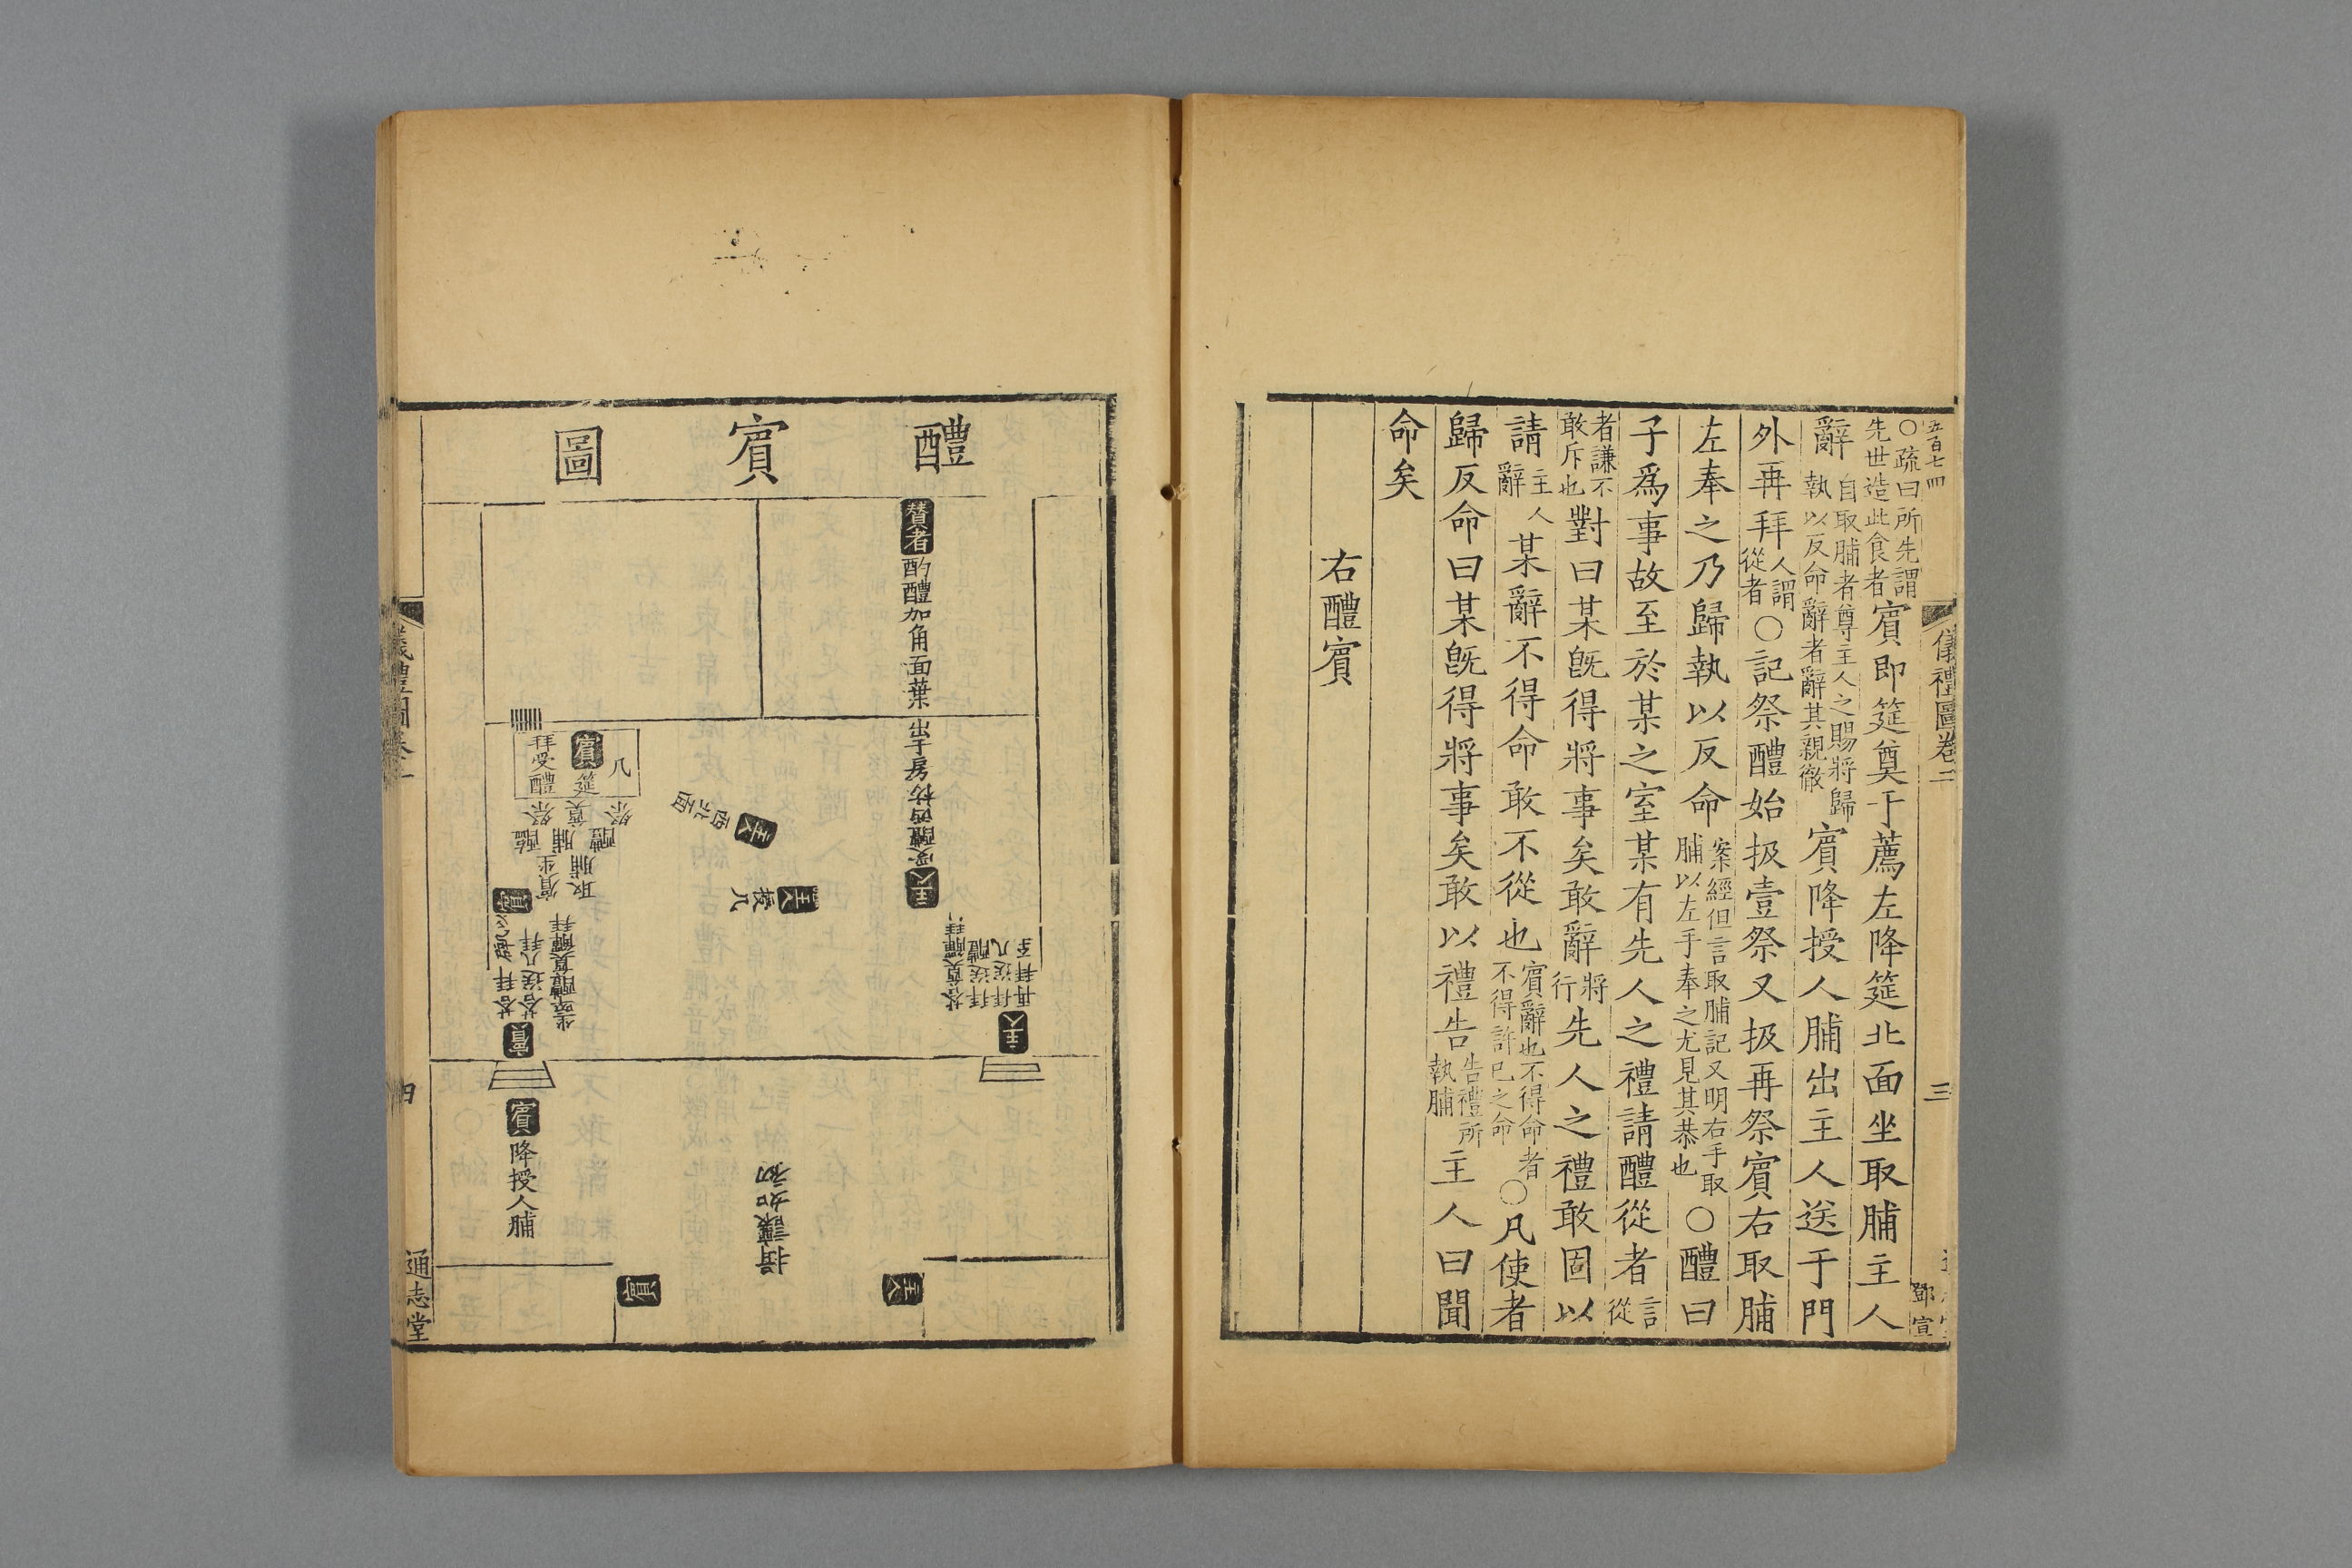 五百七四
儀禮圖卷二
三
鄧宣
○疏曰所先謂
先世造此食者
賓即筵奠于薦左降筵北面坐取脯主人
辭
自取脯者尊主人之賜將歸
執以反命辭者辭其親徹
賓降授人脯出主人送于門
外再拜
人謂
從者
○記祭醴始扱壹祭又扱再祭賓右取脯
左奉之乃歸執以反命
案經但言取脯記又明右手取
脯以左手奉之尤見其恭也
○醴曰
子爲事故至於某之室某有先人之禮請醴從者
言
從
者謙不
敢斥也
對曰某旣得將事矣敢辭
將
行
先人之禮敢固以
請
主人
辭
某辭不得命敢不從也
賓辭也不得命者
不得許已之命
○凡使者
歸反命曰某旣得將事矣敢以禮告
告禮所
執脯
主人曰聞
命矣
右醴賓
醴賓圖
贊者酌醴加角面葉出于房
主人受醴面枋
主人西北面
主人
拂几
几
賓筵
拜受醴
祭醴
奠脯
祭醢
取脯
賓坐
賓
坐啐醴奠觶拜
答拜
賓
主人
再拜至
拜送几
拜送醴
答奠觶拜
賓降授人脯
揖讓如初
主人
賓
儀禮圖卷二
四
通志堂